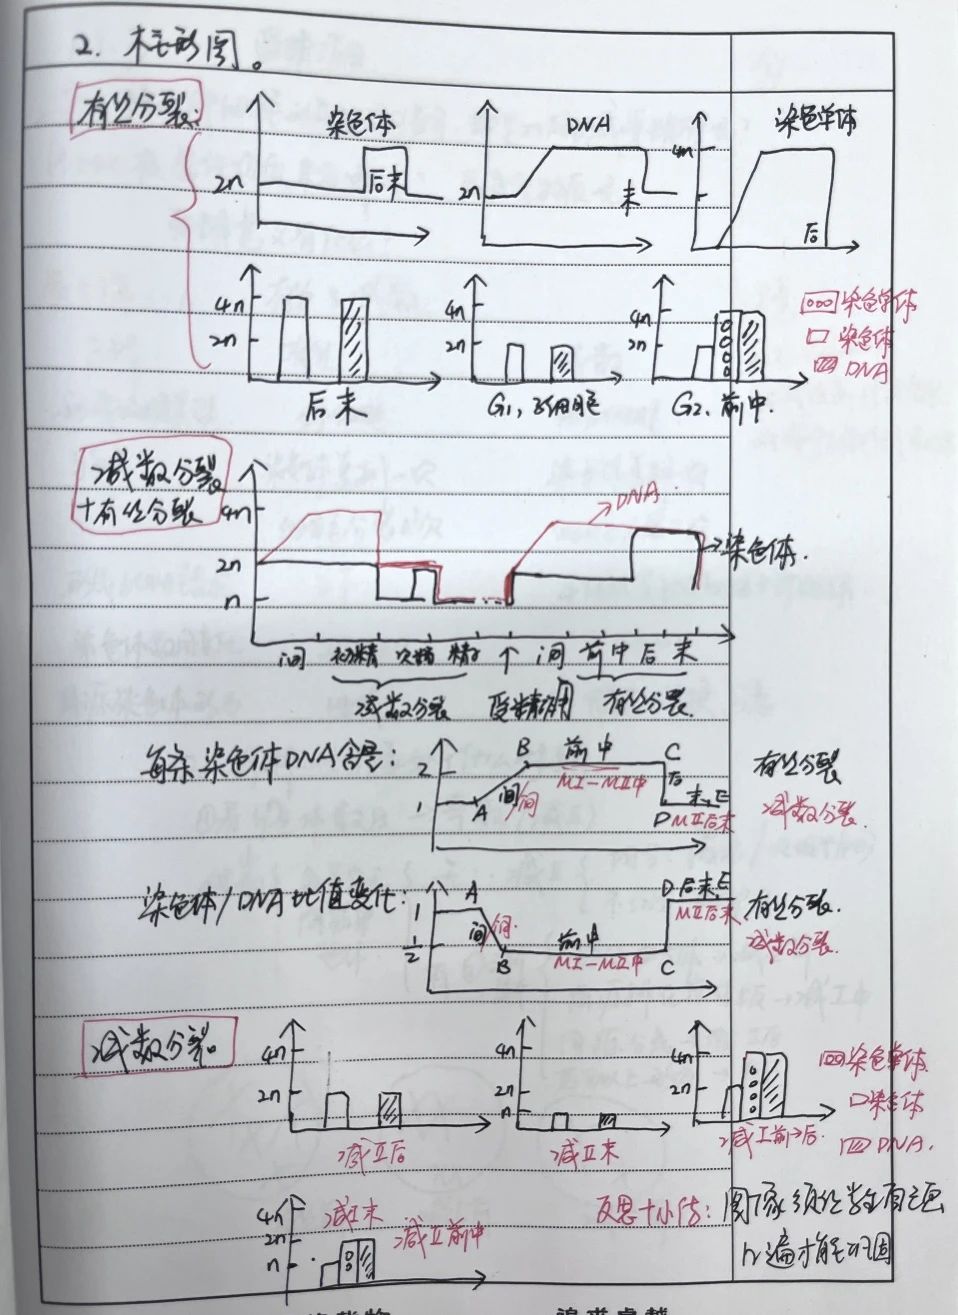 2. 柱形图。
有丝分裂:
染色体
2n
后末
DNA
2n
末
染色单体
4n
后
4n
2n
后末
4n
2n
G1,子细胞
4n
2n
G2,前中.
染色单体
染色体
DNA
减数分裂
+有丝分裂
4n
2n
n
DNA
染色体.
间 初精 次精 精子 ↑ 间 前中后末
减数分裂 受精卵 有丝分裂.
每条染色体DNA含量:
2
1
A
B
前中
C
间
间
MI-MII中
后
末,E
D
MII后末
有丝分裂
减数分裂.
染色体/DNA比值变化:
1
1/2
A
间
间.
B
前中
MI-MII中
C
D后末,E
MII后末
有丝分裂.
减数分裂.
减数分裂。
4n
2n
减II后
4n
2n
n
减II末
4n
2n
减I前→后.
染色单体
染色体
DNA.
4n
2n
n
减I末
减II前中
反思+小结: 图像须经学生自己画
几遍才能巩固
追求卓越